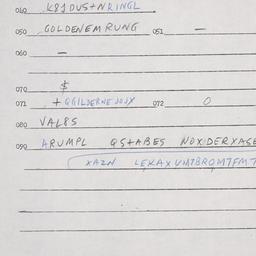 040 K81DUS+NRINGL
050 GOLDENEMRUNG 051 —
060 —
070 $
071 + QGILDERNEJOJX 072 O
080 VAL85
090 ARUMPL QS+ABES NOXDERXASE
XAZN LEKAXVM7BRQM7FM7